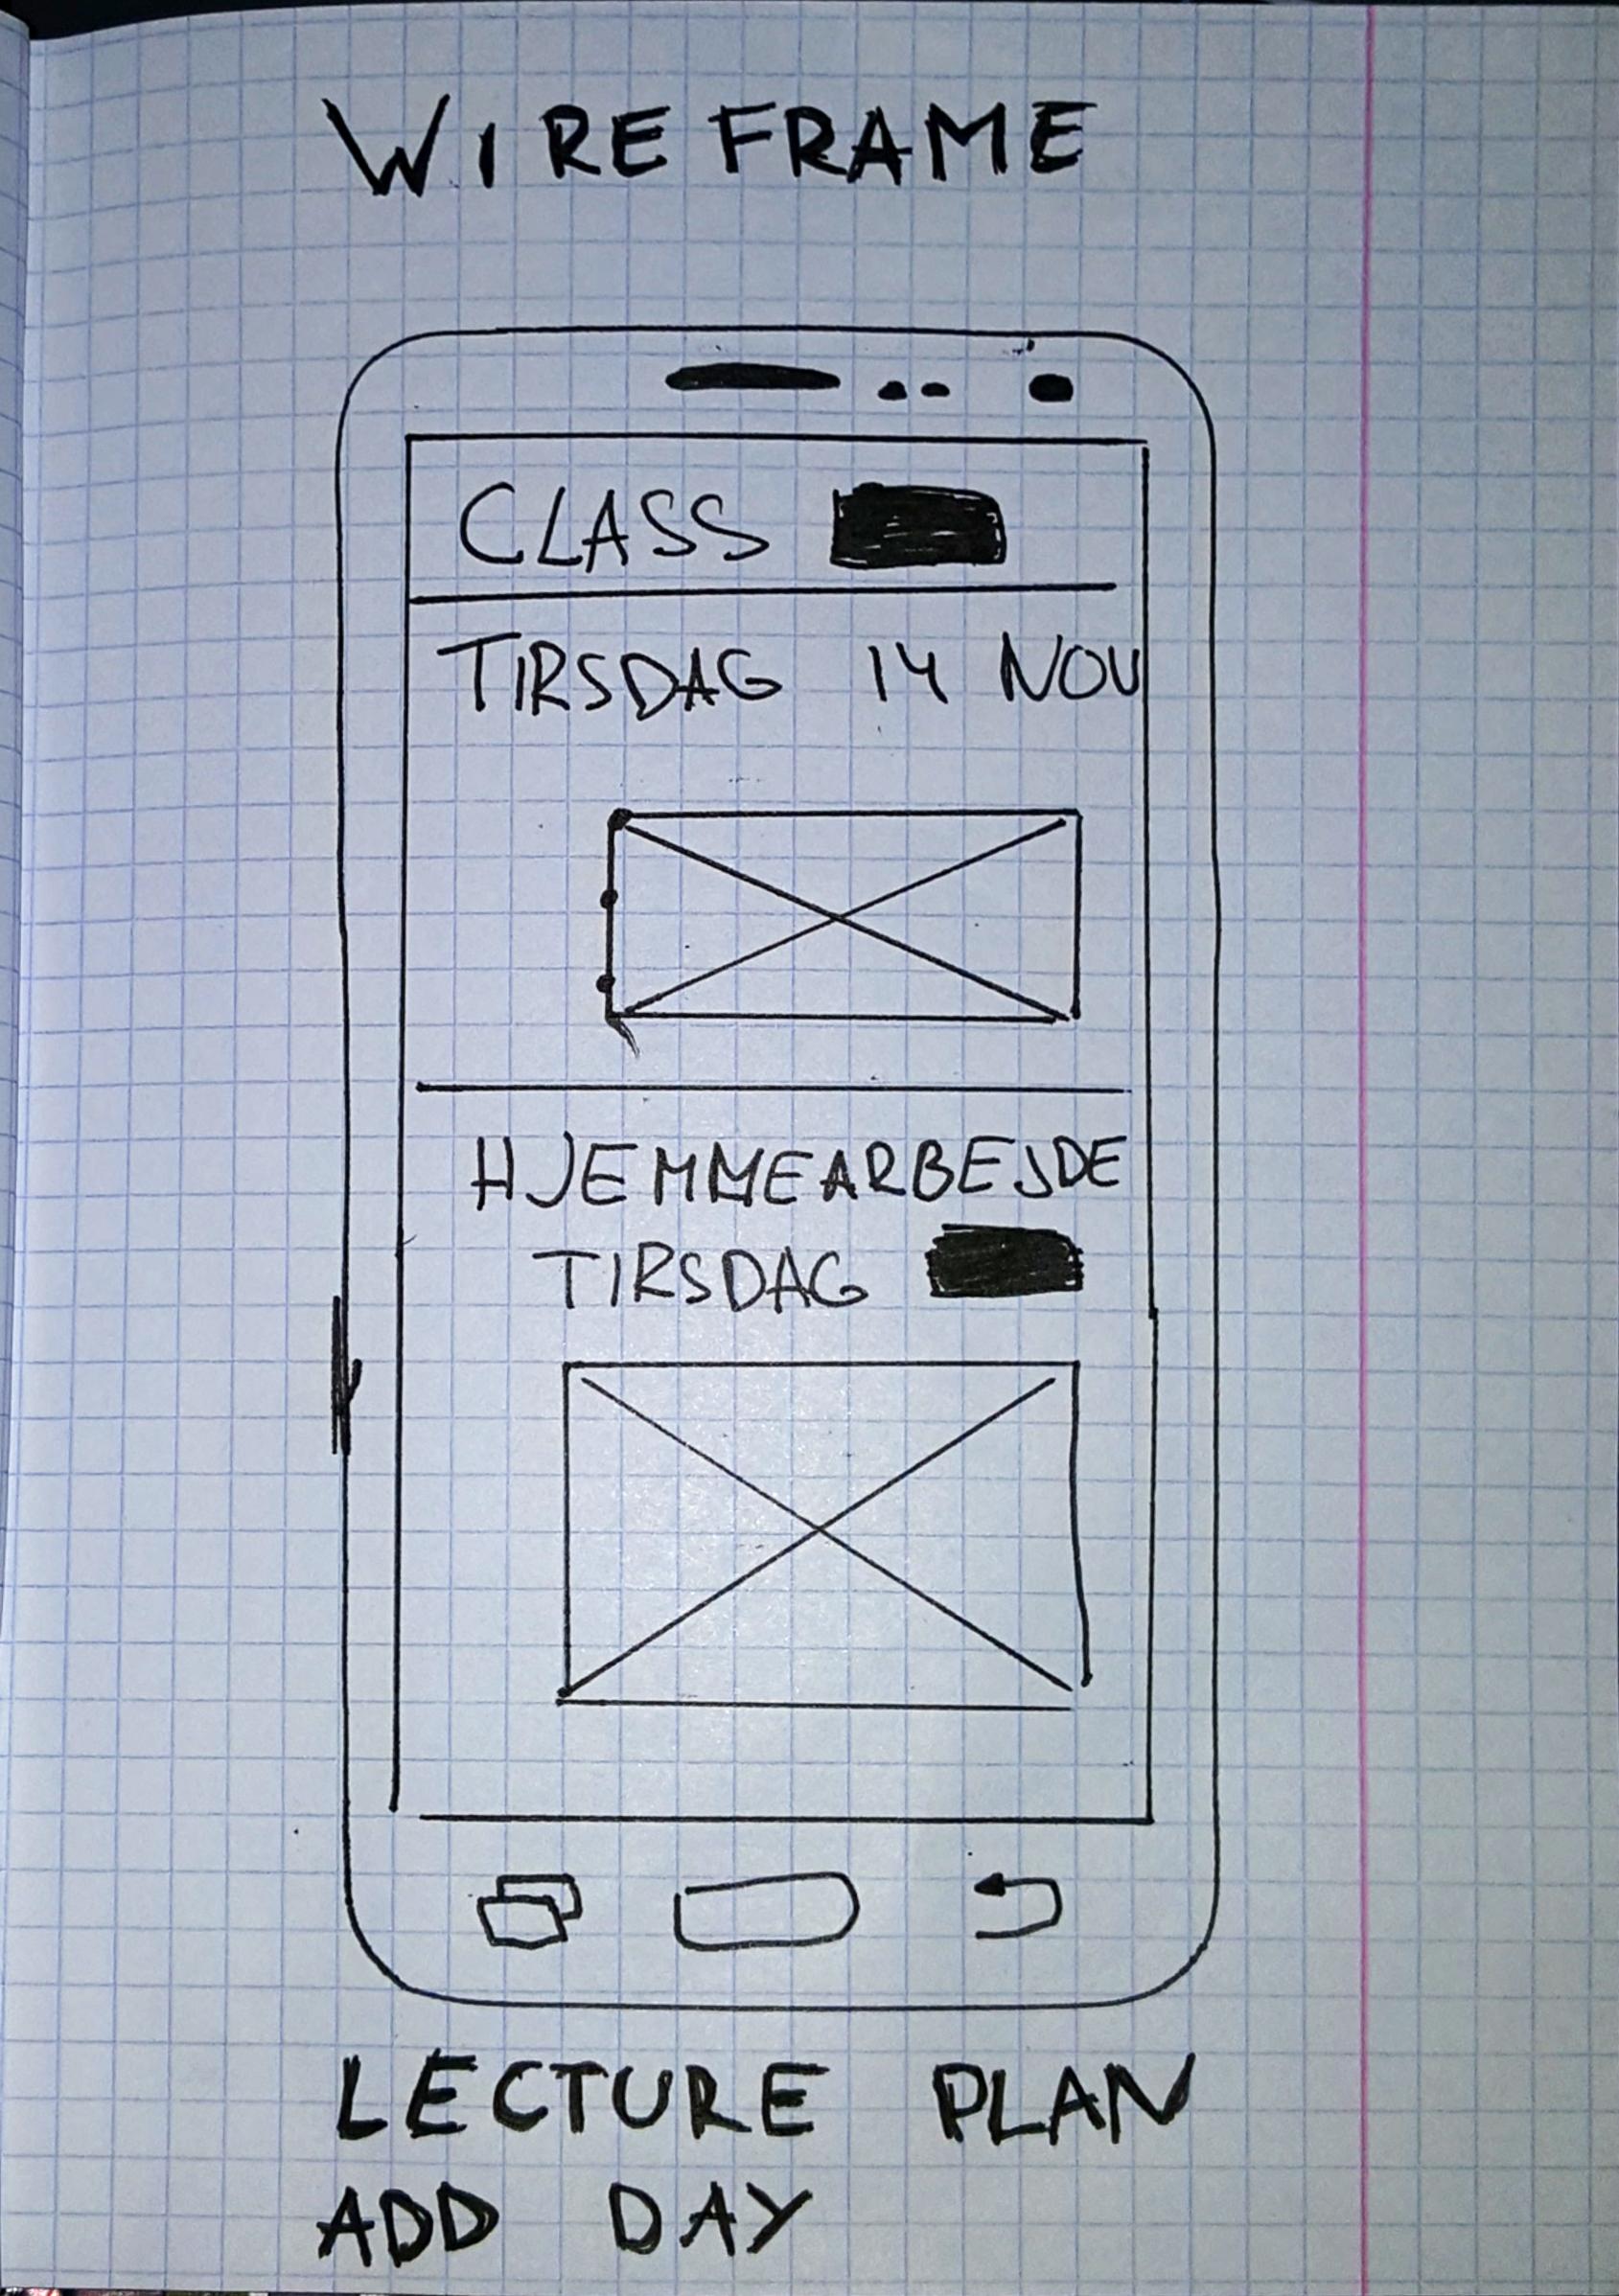 WIREFRAME
CLASS
TIRSDAG 14 NOV
HJEMMEARBEJDE
TIRSDAG
LECTURE PLAN
ADD DAY